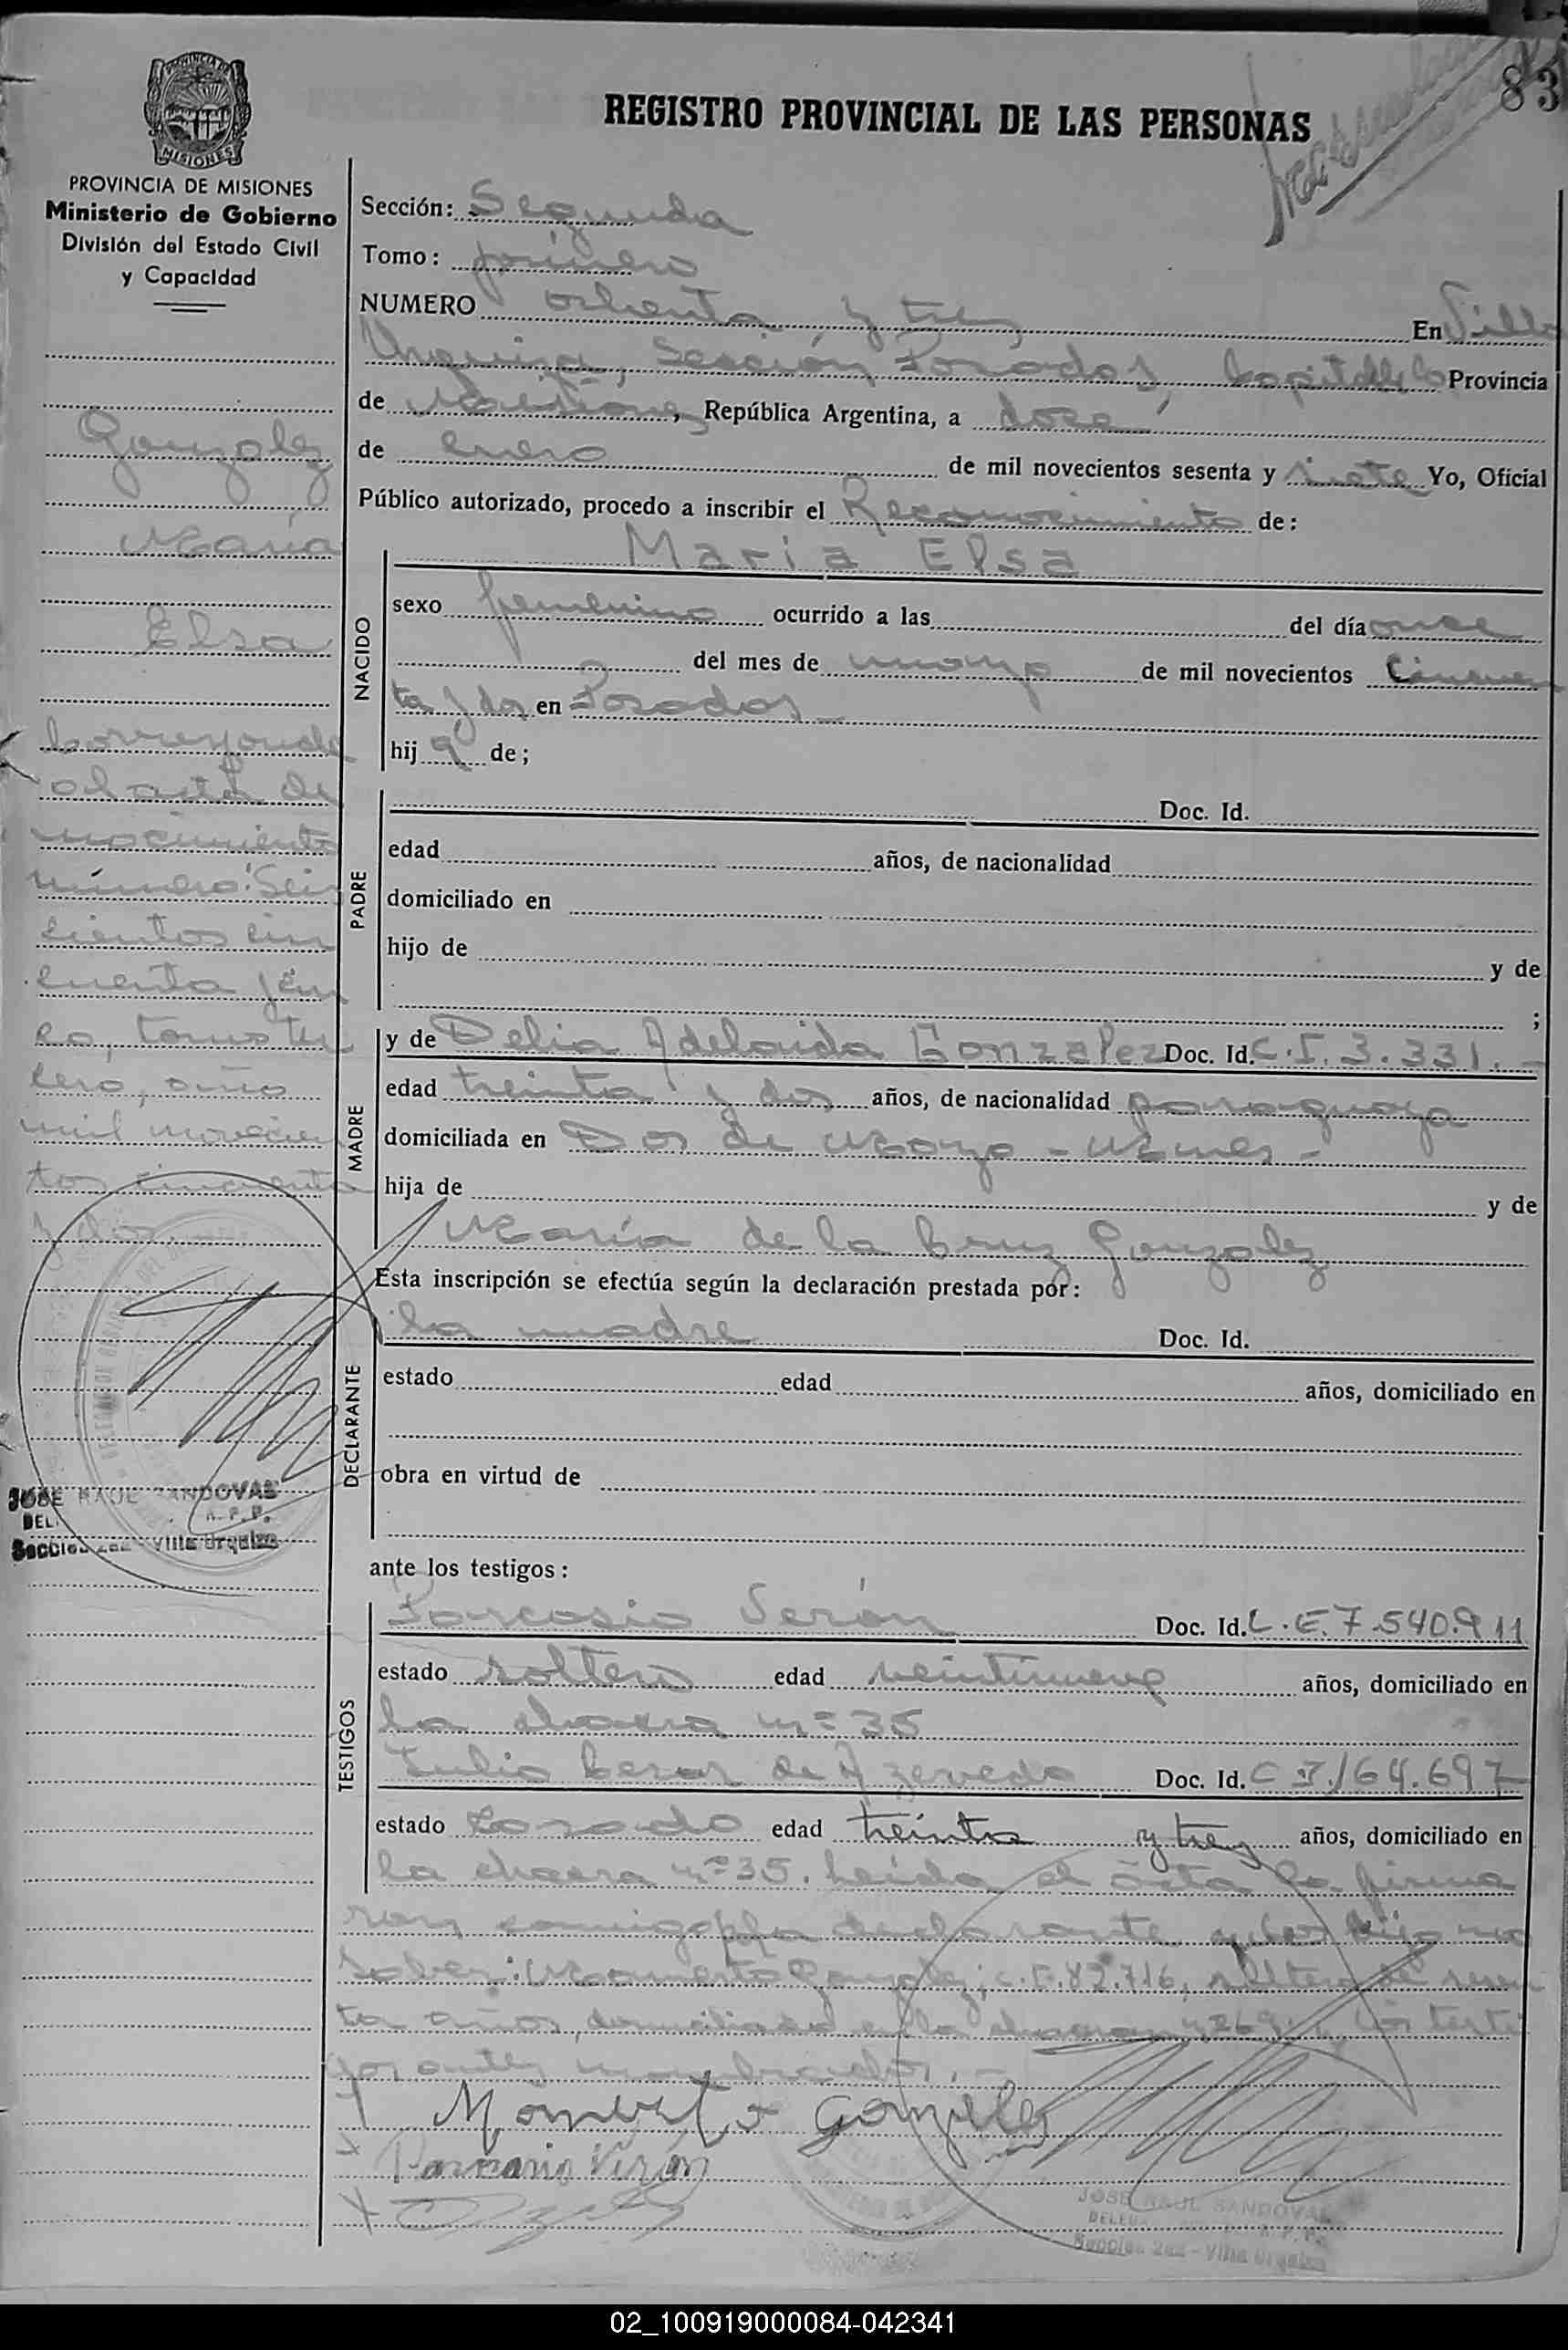 83
REGISTRO PROVINCIAL DE LAS PERSONAS
PROVINCIA DE MISIONES
MISIONES
PROVINCIA DE MISIONES
Ministerio de Gobierno
División del Estado Civil
y Capacidad
Gonzalez
María
Elsa
Corresponde
al acta de
nacimiento
número: Seis
cientos cin
cuenta y cin
co, tomo ter
cero, año
mil novecien
tos cincuenta
y dos.
JOSE RAUL SANDOVAL
DEL. R.P.P.
Sección 2da - Villa Urquiza
Sección: Segunda
Tomo: primero
NUMERO ochenta y tres En Villa
Urquiza, Sección Posadas, Capital de la Provincia
de Misiones, República Argentina, a doce
de enero de mil novecientos sesenta y siete Yo, Oficial
Público autorizado, procedo a inscribir el Reconocimiento de:
NACIDO
Maria Elsa
sexo femenino ocurrido a las del día once
del mes de mayo de mil novecientos Cincuen
ta y dos en Posadas
hij a de;
PADRE
Doc. Id.
edad años, de nacionalidad
domiciliado en
hijo de y de
;
MADRE
y de Delia Adelaida Gonzalez Doc. Id. C.I. 3.331.-
edad treinta y dos años, de nacionalidad paraguaya
domiciliada en Dos de Mayo - Mnes -
hija de y de
María de la Cruz Gonzalez
Esta inscripción se efectúa según la declaración prestada por:
DECLARANTE
la madre Doc. Id.
estado edad años, domiciliado en
obra en virtud de
ante los testigos:
TESTIGOS
Doc. Id. L.E. 7.540.911
estado soltero edad veintinueve años, domiciliado en
la chacra nº 35
Julio Cesar de Azevedo Doc. Id. C.I. 164.697
estado Casado edad treinta y tres años, domiciliado en
la chacra nº 35. Leída el acta la firma
ron conmigo p/la declarante que dijo no
saber: Gonzalez, C.I. 82.716, soltero de sesen
ta años, domiciliado en la chacra y los testi
gos antes nombrados.-
Gonzalez
JOSE RAUL SANDOVAL
DELEG R.P.P.
Sección 2da - Villa Urquiza
02_100919000084-042341